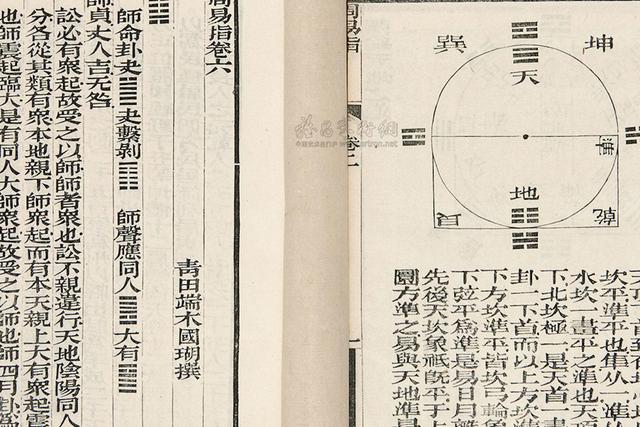 巽
坤
天
準
地
乾
坎平準也隹从一準
水坎一畫平之準也天項
下北坎極一是天首一畫
卦一下首而以上方坎
下方坎準平皆坎弓輪象
下弦平為準是易日月
先後天坎象祗既平于上
圓方準之易與天地準
周易指
卷二
周易指卷六
青田端木國瑚撰
師命卦史 史繫剝 師聲應同人 大有
師貞丈人吉无咎
訟必有眾起故受之以師師者眾也訟不親違行天地陰陽同人
分各從其類有眾本地親下師眾起而有本天親上大有眾起雲
也師雲起臨大是有同人大師眾起故受之以師也師四月卦為